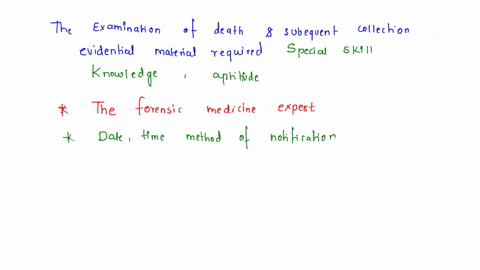 The Examination of death & subequent collection
evidential material required Special skill
Knowledge, aptitude
* The forensic medicine expert
* Date, time method of notification